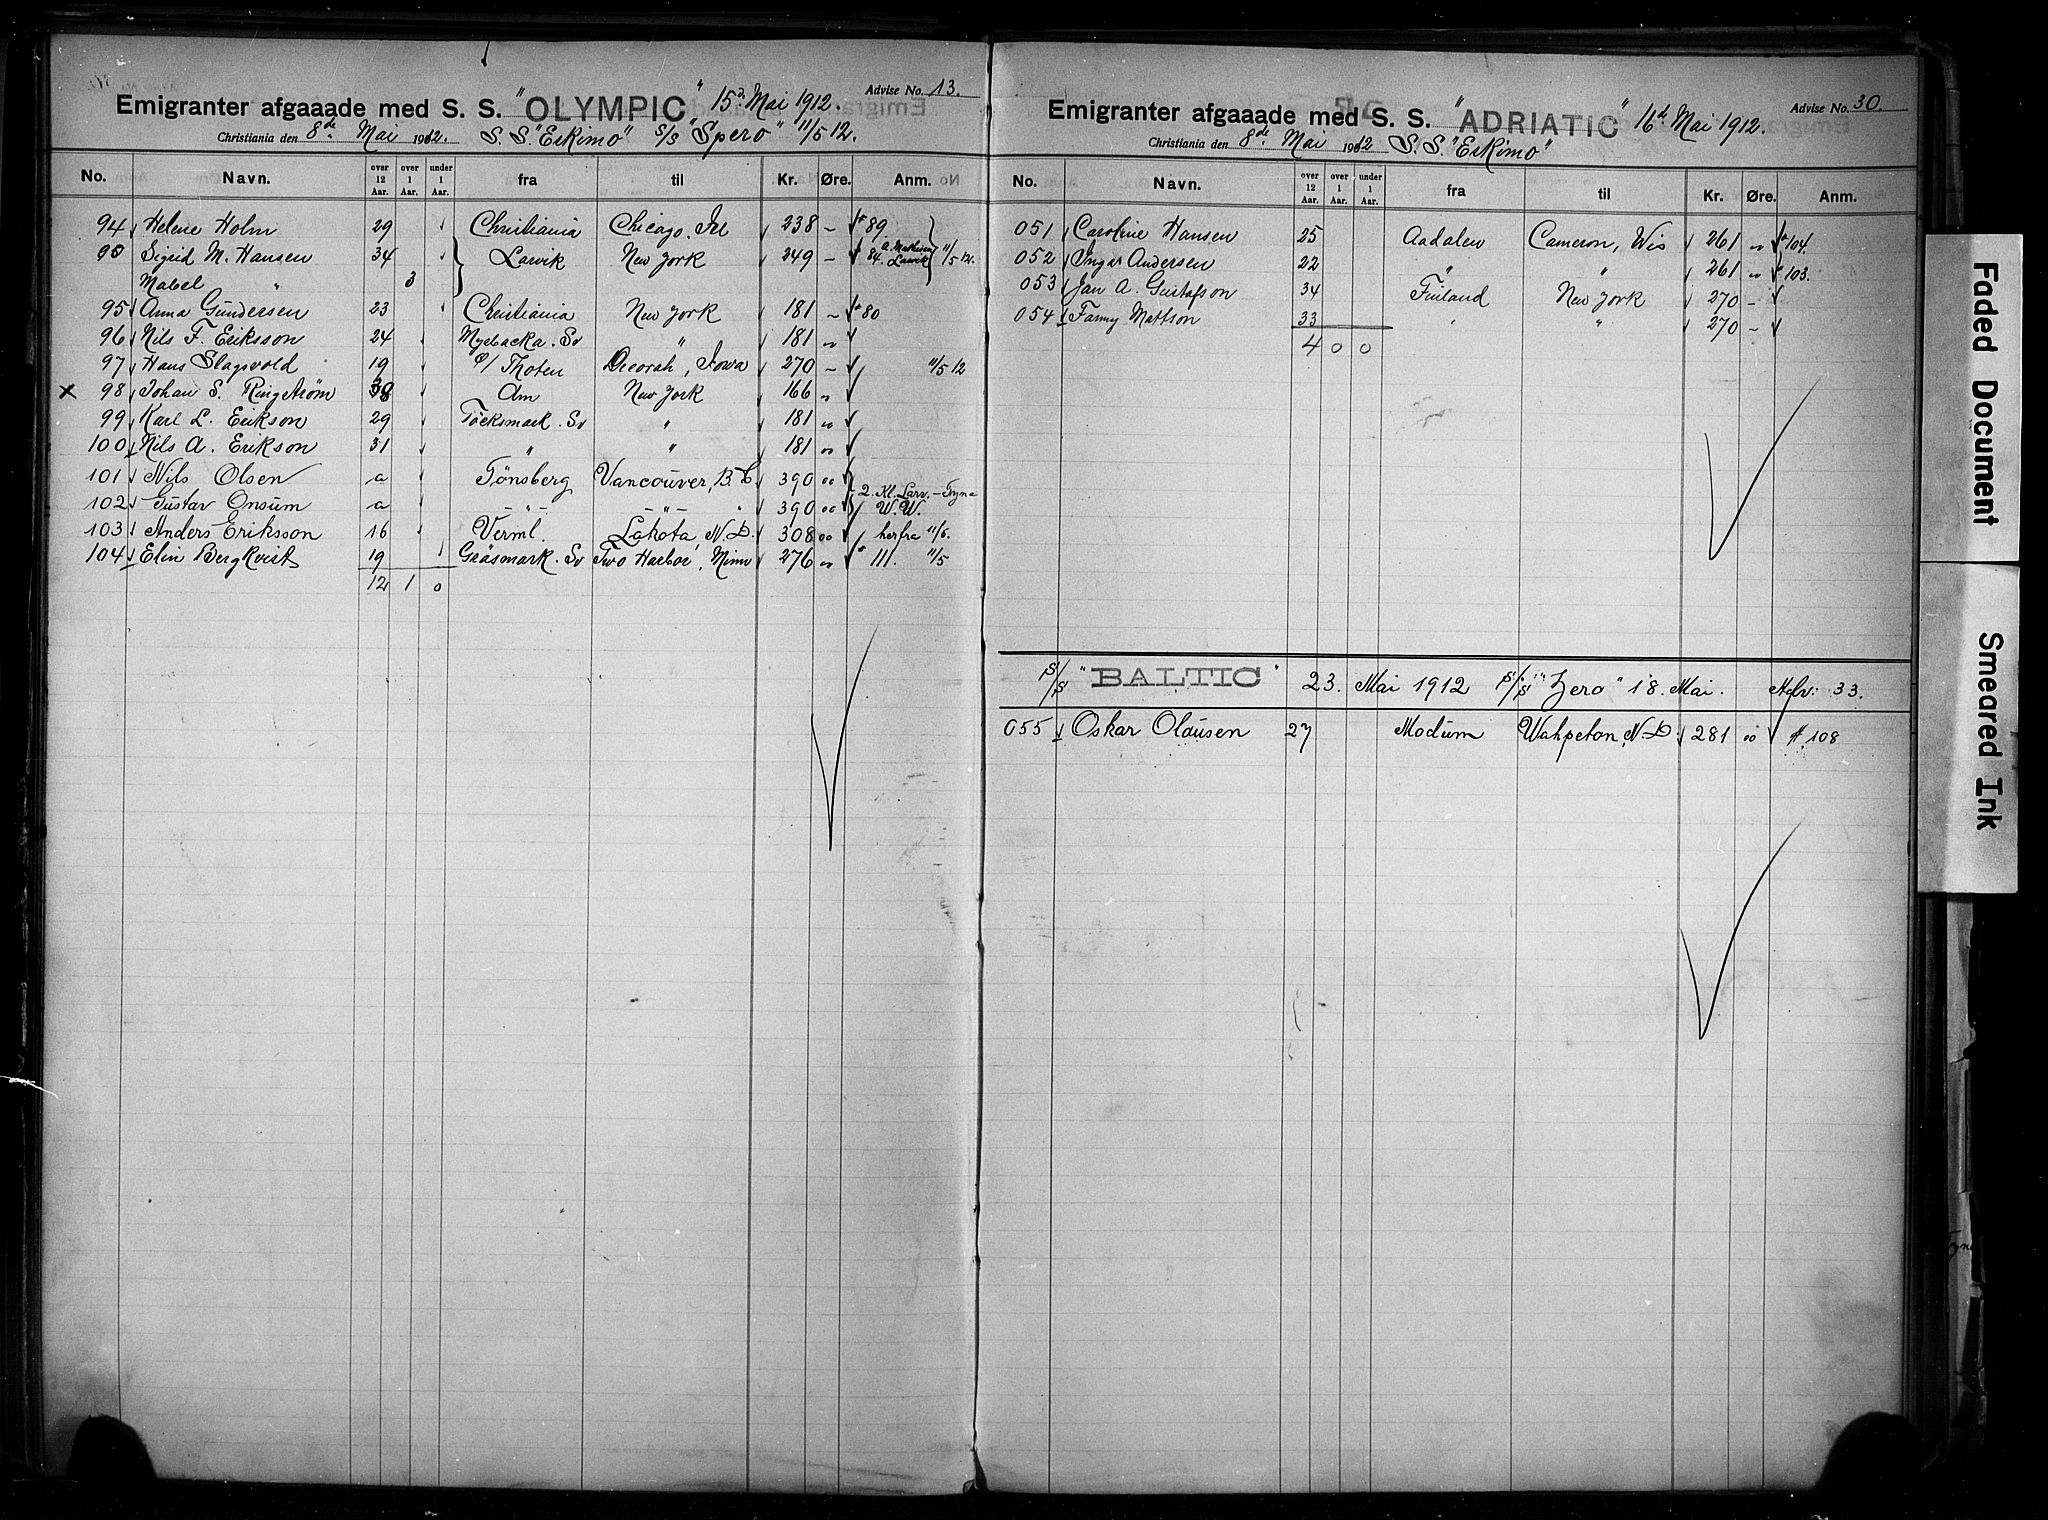 Emigranter afgaaade med S. S. "OLYMPIC" 15d. Mai 1912. Advise No. 13.
Christiania den 8de Mai 1912. S. S. "Eskimo" S/S "Spero" 11/5 12.
No. Navn. over 12 Aar. over 1 Aar. under 1 Aar. fra til Kr. Øre. Anm.
94 Helene Holm 29 Christiania Chicago. Ill 238 – # 89
95 Sigrid M. Hansen 34 Larvik New York 249 – # 84. A. Mathisen Larvik 11/5 12.
Mabel " 3
95 Anna Gundersen 23 Christiania New York 181 – # 80
96 Nils F. Eriksson 24 Myrbacka. Sv " 181 "
97 Hans Slagsvold 19 Ø/ Thoten Decorah, Iowa 270 – 11/5 12
x 98 Johan S. Ringstrøm 38 Am New York 166 "
99 Karl L. Erikson 29 Töcksmark. Sv " 181 "
100 Nils A. Erikson 31 " " 181 "
101 Nils Olsen a Tønsberg Vancouver, B. C. 390 00
2. Kl. Larv. – Tryna
102 Gustav Onsum a – " – – " – 390 00 W. W.
103 Anders Eriksson 16 Verml. Lakota N. D. 308 00 herfra 11/5.
104 Elin Bergkvist 19 Gräsmark. Sv Two Harbor, Minn 276 " # 111. 11/5
12 1 0
Emigranter afgaaade med S. S. "ADRIATIC" 16d Mai 1912. Advise No. 30.
Christiania den 8de. Mai 1912 S. S. "Eskimo"
No. Navn. over 12 Aar. over 1 Aar. under 1 Aar. fra til Kr. Øre. Anm.
051 Caroline Hansen 25 Aadalen Cameron, Wis 261 " # 104.
052 Ingar Andersen 22 " " 261 " # 103.
053 Jan A. Gustafson 34 Finland New York 270 –
054 Fanny Mattson 33 " " 270 –
4 0 0
S/S "BALTIC" 23. Mai 1912 S/S "Zero" 18. Mai. Adv: 33.
055 Oskar Olausen 27 Modum Wahpeton, N. D. 281 00 #. 108
Faded Document
Smeared Ink